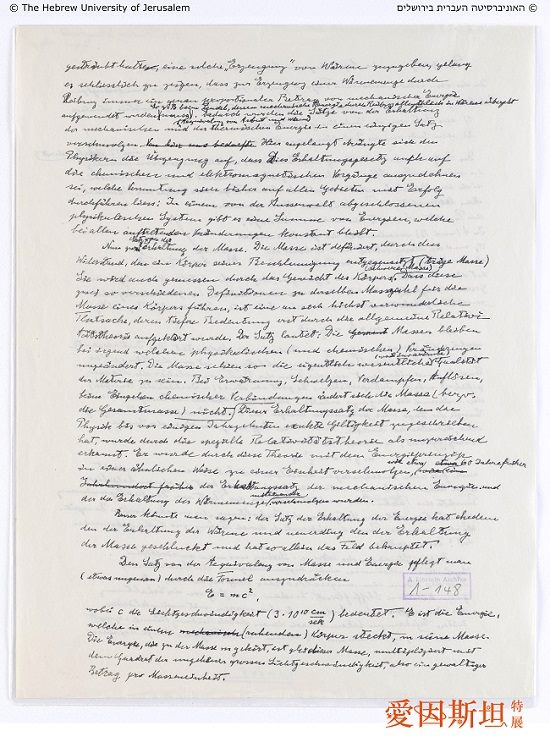 © The Hebrew University of Jerusalem
האוניברסיטה העברית בירושלים ©
gesträubt hatten, eine solche „Erzeugung" von Wärme zuzugeben, gelang
es schliesslich zu zeigen, dass zur Erzeugung einer Wärmemenge durch
Reibung immer ein genau proportionaler Betrag von mechanischer Energie
aufgewendet werden
wurden die Sätze von der Erhaltung
der mechanischen und der thermischen Energie in einen einzigen Satz
verschmolzen. Hier angelangt drängte sich den
Physikern die Überzeugung auf, dass dies Erhaltungsgesetz auch auf
die chemischen und elektromagnetischen Vorgänge auszudehnen
sei, welche Vermutung sich bisher auf allen Gebieten mit Erfolg
durchführen liess: In einem von der Aussenwelt abgeschlossenen
physikalischen System gibt es eine Summe von Energien, welche
bei allen auftretenden Änderungen konstant bleibt.
Nun zum Satz von der Erhaltung der Masse. Die Masse ist definiert durch den
Widerstand, den ein Körper seiner Beschleunigung entgegensetzt (träge Masse)
Sie wird auch gemessen durch das Gewicht des Körpers (schwere Masse). Dass diese
zwei so verschiedenen Definitionen zu derselben Masszahl für die
Masse eines Körpers führen, ist eine an sich höchst verwunderliche
Tatsache, deren tiefere Bedeutung erst durch die allgemeine Relativi-
tätstheorie aufgeklärt wurde. Der Satz lautet: Die Massen bleiben
bei irgend welchen physikalischen (und chemischen) Änderungen
ungeändert. Die Masse schien so die eigentliche wesentliche (weil unveränderte) Qualität
der Materie zu sein. Bei Erwärmung, Schmelzen, Verdampfen, Auflösen,
beim Eingehen chemischer Verbindungen ändert sich die Masse (bezw.
die Gesamtmasse) nicht. Dieser Erhaltungssatz der Masse, dem die
Physik bis vor einigen Jahrzehnten exakte Gültigkeit zugeschrieben
hat, wurde durch die spezielle Relativitätstheorie als unzureichend
erkannt. Er wurde durch diese Theorie mit dem Energieprinzip
in einer ähnlichen Weise zu einer Einheit verschmolzen, wie etwa 60 Jahre früher
der Erhaltungssatz der mechanischen Energie und
der der Erhaltung der Wärmemenge miteinander verschmolzen wurden.
Man könnte man sagen: der Satz der Erhaltung der Energie hat ehedem
den der Erhaltung der Wärme und neuerdings den der Erhaltung
der Masse geschluckt und hat so allein das Feld behauptet.
Den Satz von der Aequivalenz von Masse und Energie pflegt man
(etwas ungenau) durch die Formel auszudrücken
E = mc²,
wobei c die Lichtgeschwindigkeit (3·10¹⁰ cm/sek) bedeutet. E ist die Energie,
welche in einem (ruhenden) Körper steckt, m seine Masse.
Die Energie, die zu der Masse m gehört, ist gleich dieser Masse, multipliziert mit
dem Quadrat der ungeheuer grossen Lichtgeschwindigkeit, also ein gewaltiger
Betrag pro Masseneinheit.
A. Einstein Archive
1-148
愛因斯坦 特展